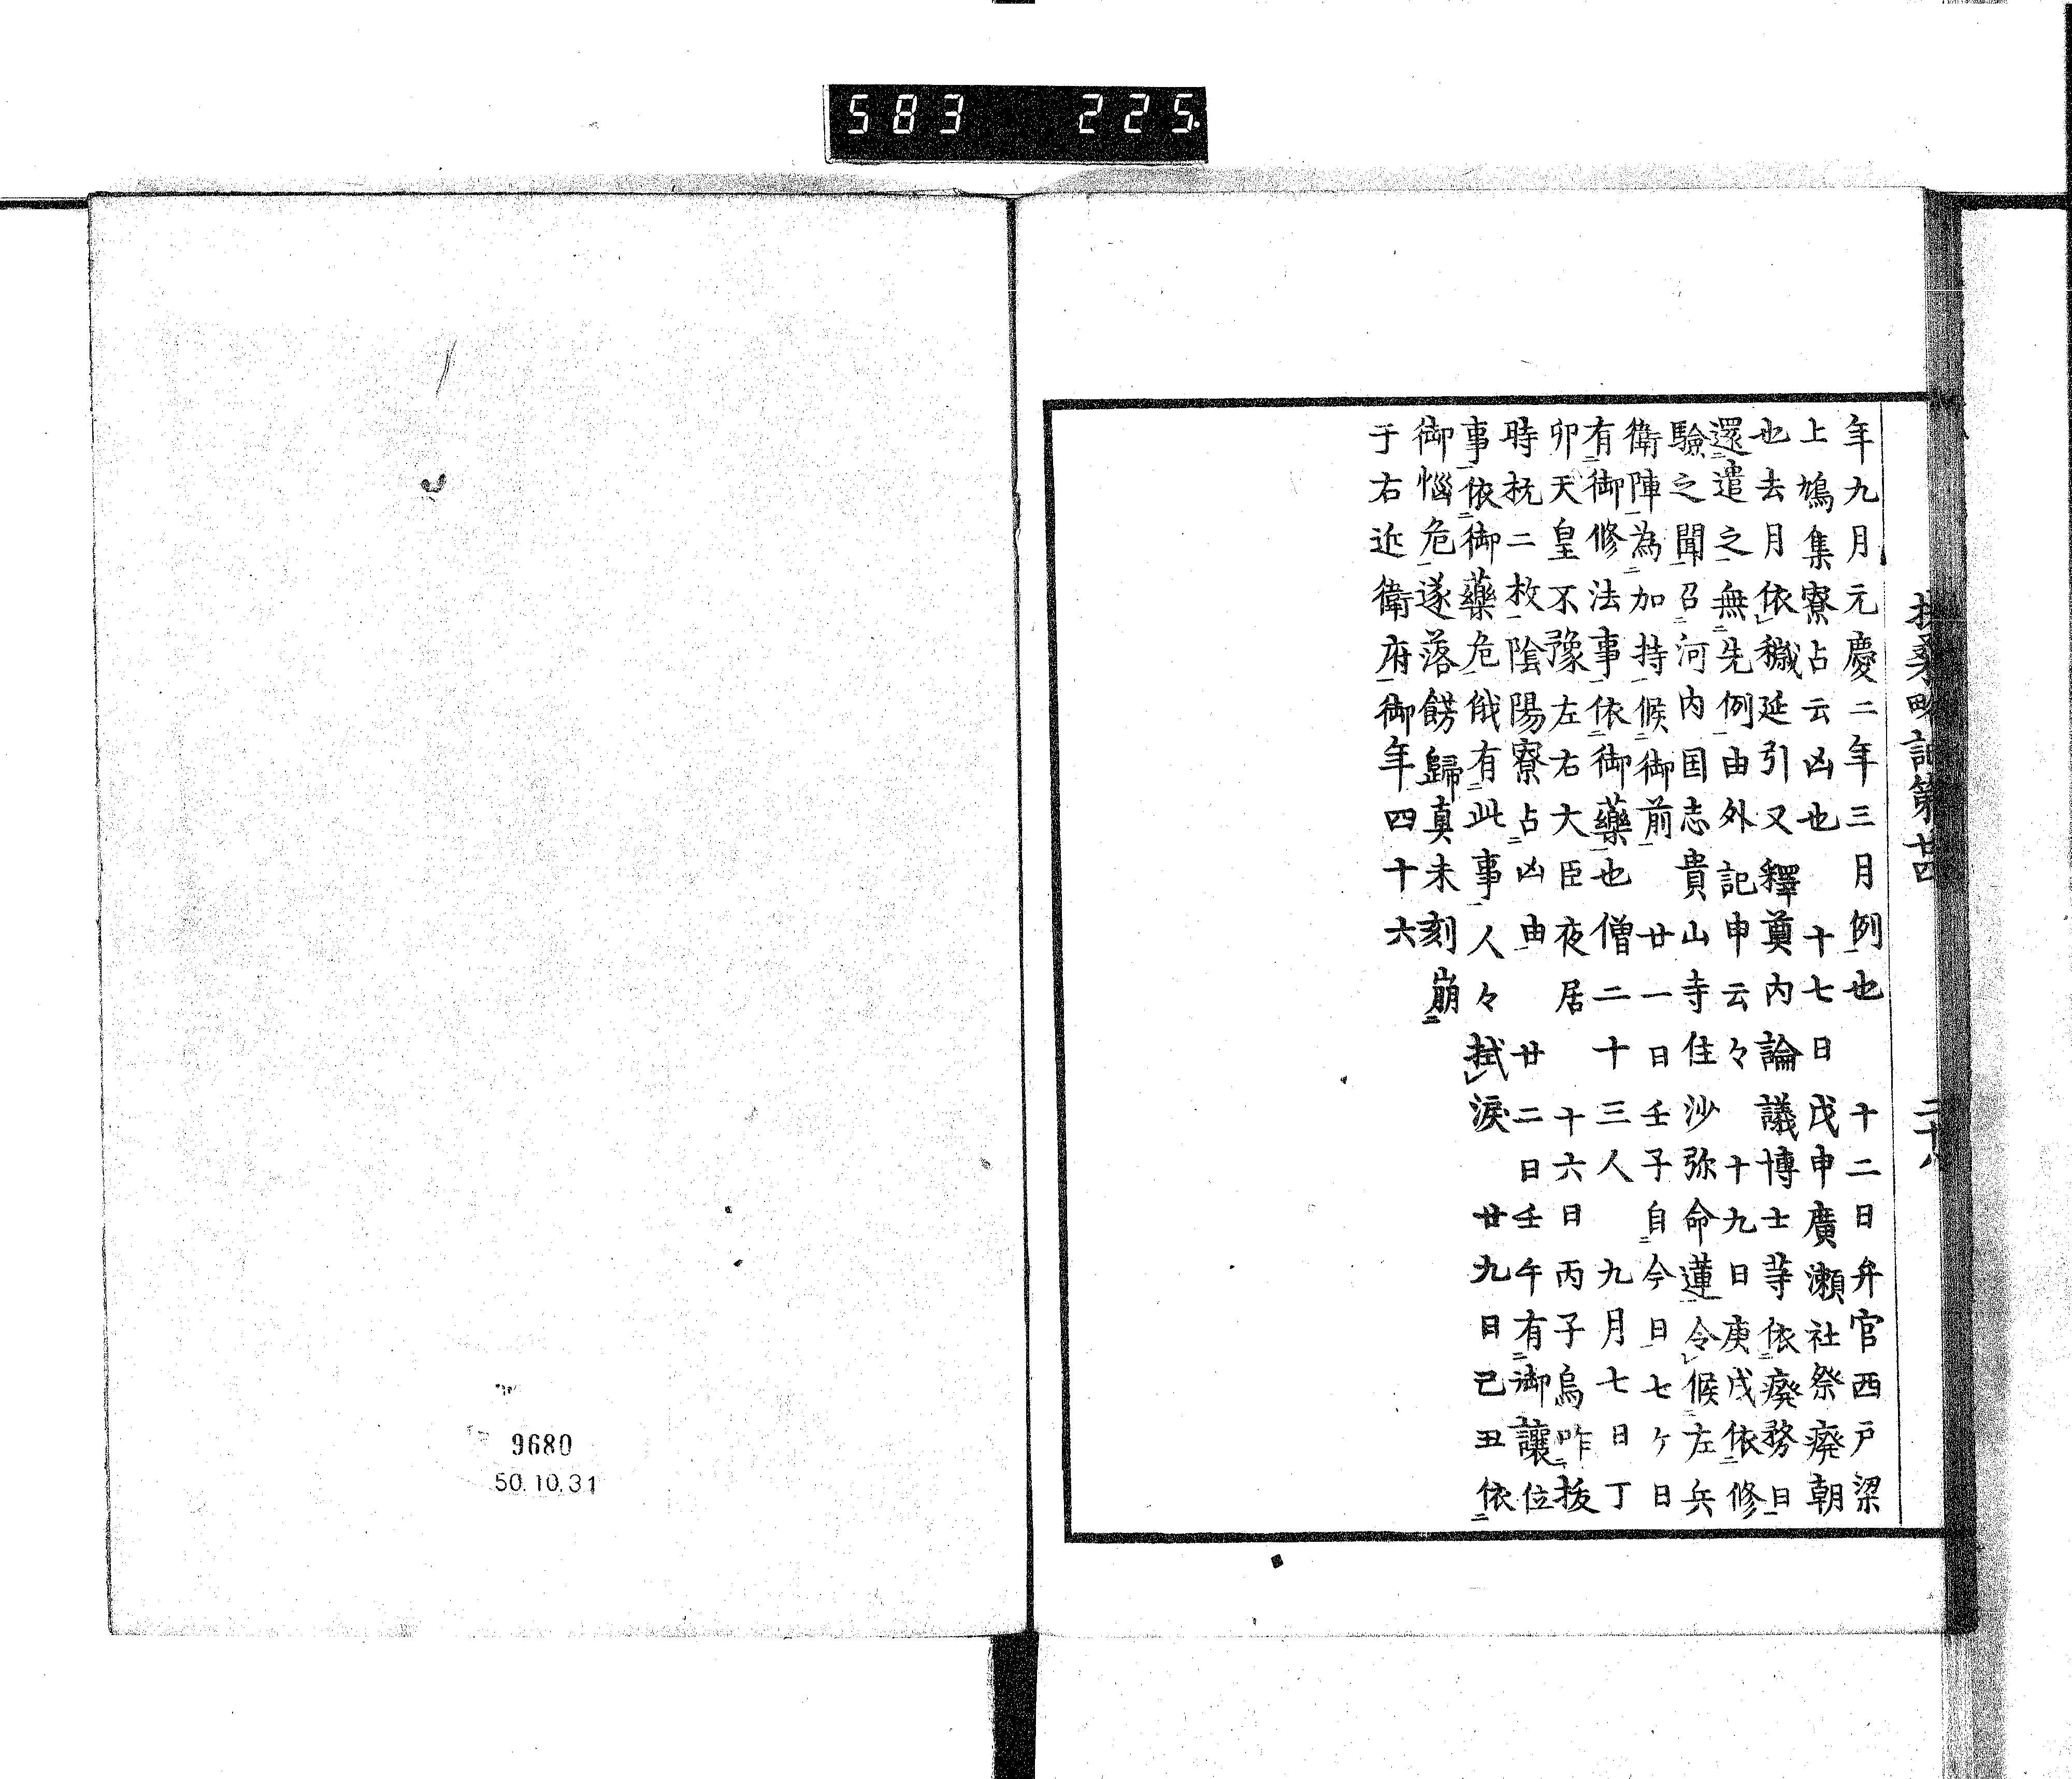 583 225.
扶桑略記第廿四 二十八
年九月元慶二年三月例也 十二日弁官西戸梁
上鳩集寮占云凶也 十七日戊申廣瀬社祭癈朝
也去月依穢延引又釋奠内論議博士等依癈務日
還遣之無先例由外記申云々 十九日庚戌依修
驗之聞召河内国志貴山寺住沙弥命蓮令候左兵
衛陣為加持候御前 廿一日壬子自今日七ケ日
有御修法事依御藥也僧二十三人 九月七日丁
卯天皇不豫左右大臣夜居 十六日丙子烏咋拔
時杭二枚陰陽寮占凶由 廿二日壬午有御讓位
事依御藥危俄有此事人々拭淚 廿九日己丑依
御惱危遂落餝歸真未刻崩
于右近衛府御年四十六
9680
50.10.31